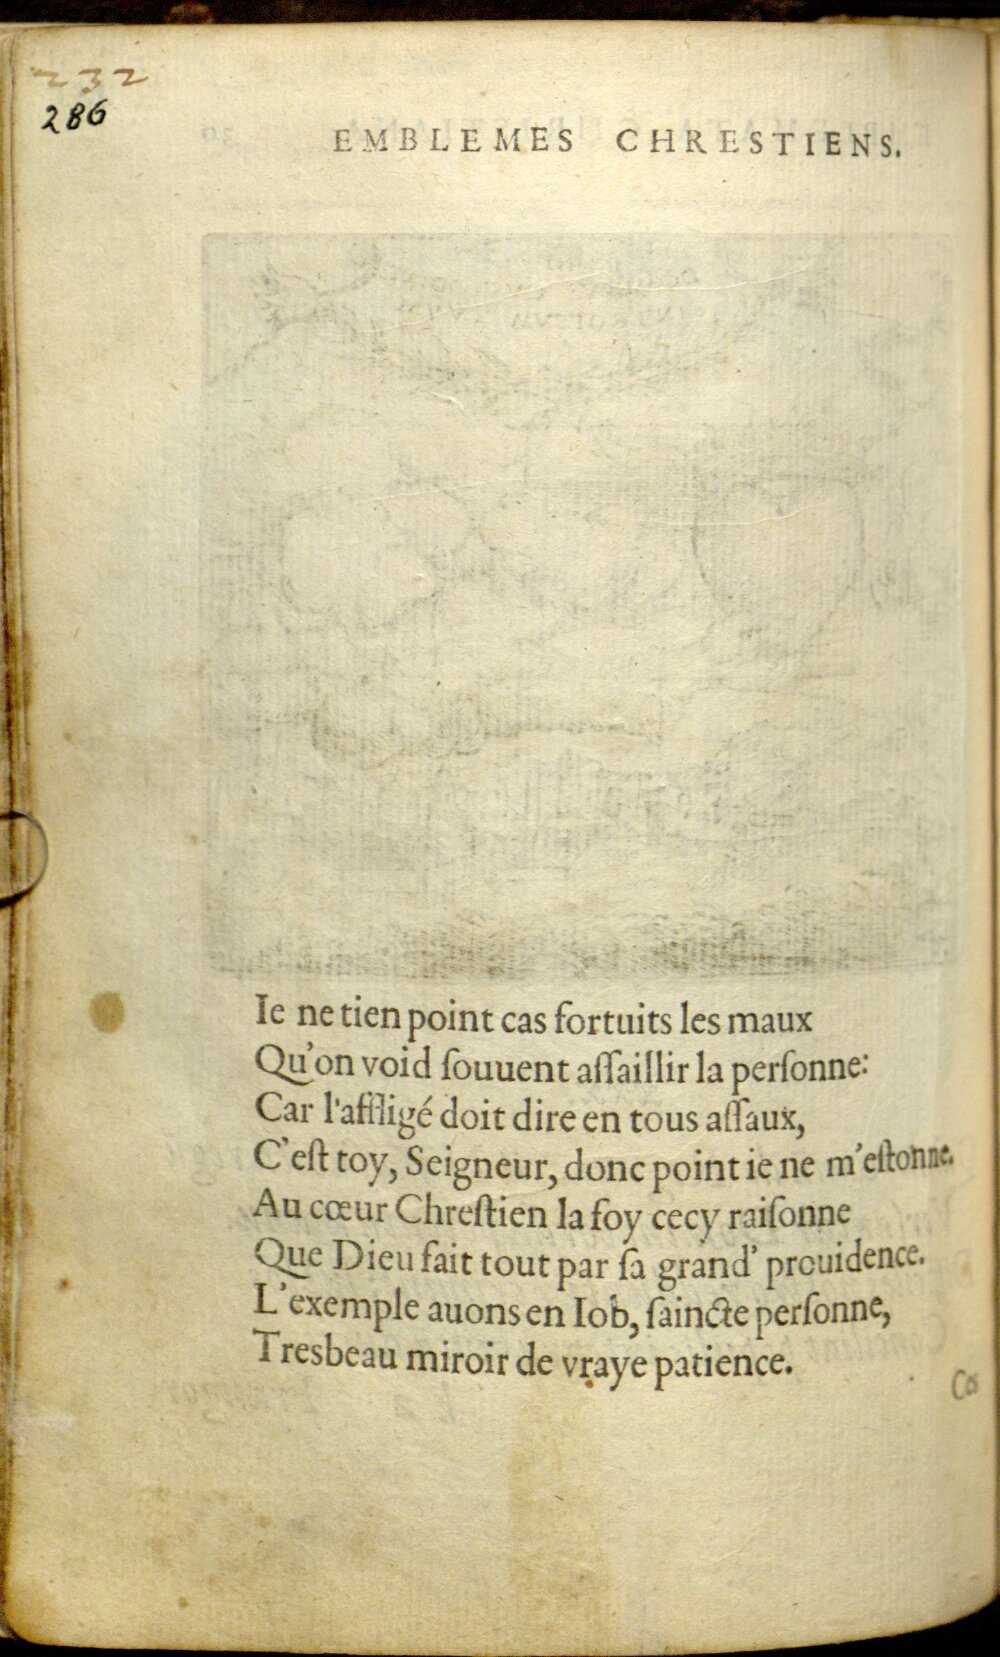 232
286
EMBLEMES CHRESTIENS.
Ie ne tien point cas fortuits les maux
Qu'on void ſouuent aſſaillir la perſonne:
Car l'affligé doit dire en tous aſſaux,
C'eſt toy, Seigneur, donc point ie ne m'eſtonne.
Au cœur Chreſtien la foy cecy raiſonne
Que Dieu fait tout par ſa grand' prouidence.
L'exemple auons en Iob, ſaincte perſonne,
Tresbeau miroir de vraye patience.